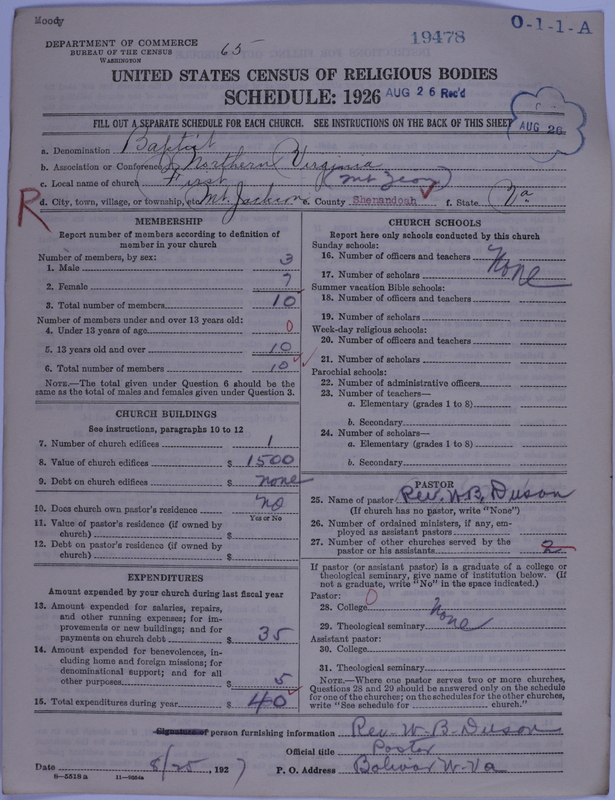 Moody
65
19478
O-1-1-A
DEPARTMENT OF COMMERCE
BUREAU OF THE CENSUS
WASHINGTON
UNITED STATES CENSUS OF RELIGIOUS BODIES
SCHEDULE: 1926
AUG 26 Rec'd
FILL OUT A SEPARATE SCHEDULE FOR EACH CHURCH. SEE INSTRUCTIONS ON THE BACK OF THIS SHEET
AUG 26
a. Denomination Baptist
b. Association or Conference Northern Virginia
c. Local name of church First (Mt Zion)
R
d. City, town, village, or township, etc. Mt. Jackson e. County Shenandoah f. State Va
MEMBERSHIP
Report number of members according to definition of
member in your church
Number of members, by sex:
1. Male 3
2. Female 7
3. Total number of members 10
Number of members under and over 13 years old:
4. Under 13 years of age 0
5. 13 years old and over 10
6. Total number of members 10
NOTE.—The total given under Question 6 should be the
same as the total of males and females given under Question 3.
CHURCH BUILDINGS
See instructions, paragraphs 10 to 12
7. Number of church edifices 1
8. Value of church edifices $ 1500
9. Debt on church edifices $ none
10. Does church own pastor's residence? no
Yes or No
11. Value of pastor's residence (if owned by
church) $
12. Debt on pastor's residence (if owned by
church) $
EXPENDITURES
Amount expended by your church during last fiscal year
13. Amount expended for salaries, repairs,
and other running expenses; for im-
provements or new buildings; and for
payments on church debt $ 35
14. Amount expended for benevolences, in-
cluding home and foreign missions; for
denominational support; and for all
other purposes $ 5
15. Total expenditures during year $ 40
CHURCH SCHOOLS
Report here only schools conducted by this church
Sunday schools:
16. Number of officers and teachers
17. Number of scholars None
Summer vacation Bible schools:
18. Number of officers and teachers
19. Number of scholars
Week-day religious schools:
20. Number of officers and teachers
21. Number of scholars
Parochial schools:
22. Number of administrative officers
23. Number of teachers—
a. Elementary (grades 1 to 8)
b. Secondary
24. Number of scholars—
a. Elementary (grades 1 to 8)
b. Secondary
PASTOR
25. Name of pastor Rev. W. B. Duson
(If church has no pastor, write "None")
26. Number of ordained ministers, if any, em-
ployed as assistant pastors
27. Number of other churches served by the
pastor or his assistants 2
If pastor (or assistant pastor) is a graduate of a college or
theological seminary, give name of institution below. (If
not a graduate, write "No" in the space indicated.)
Pastor: 0
28. College None
29. Theological seminary
Assistant pastor:
30. College
31. Theological seminary
NOTE.—Where one pastor serves two or more churches,
Questions 28 and 29 should be answered only on the schedule
for one of the churches; on the schedules for the other churches,
write "See schedule for church."
Signature of person furnishing information Rev. W. B. Duson
Official title Pastor
Date 8/25, 1927 P. O. Address Bolivar W. Va
8—5518 a 11—9554a